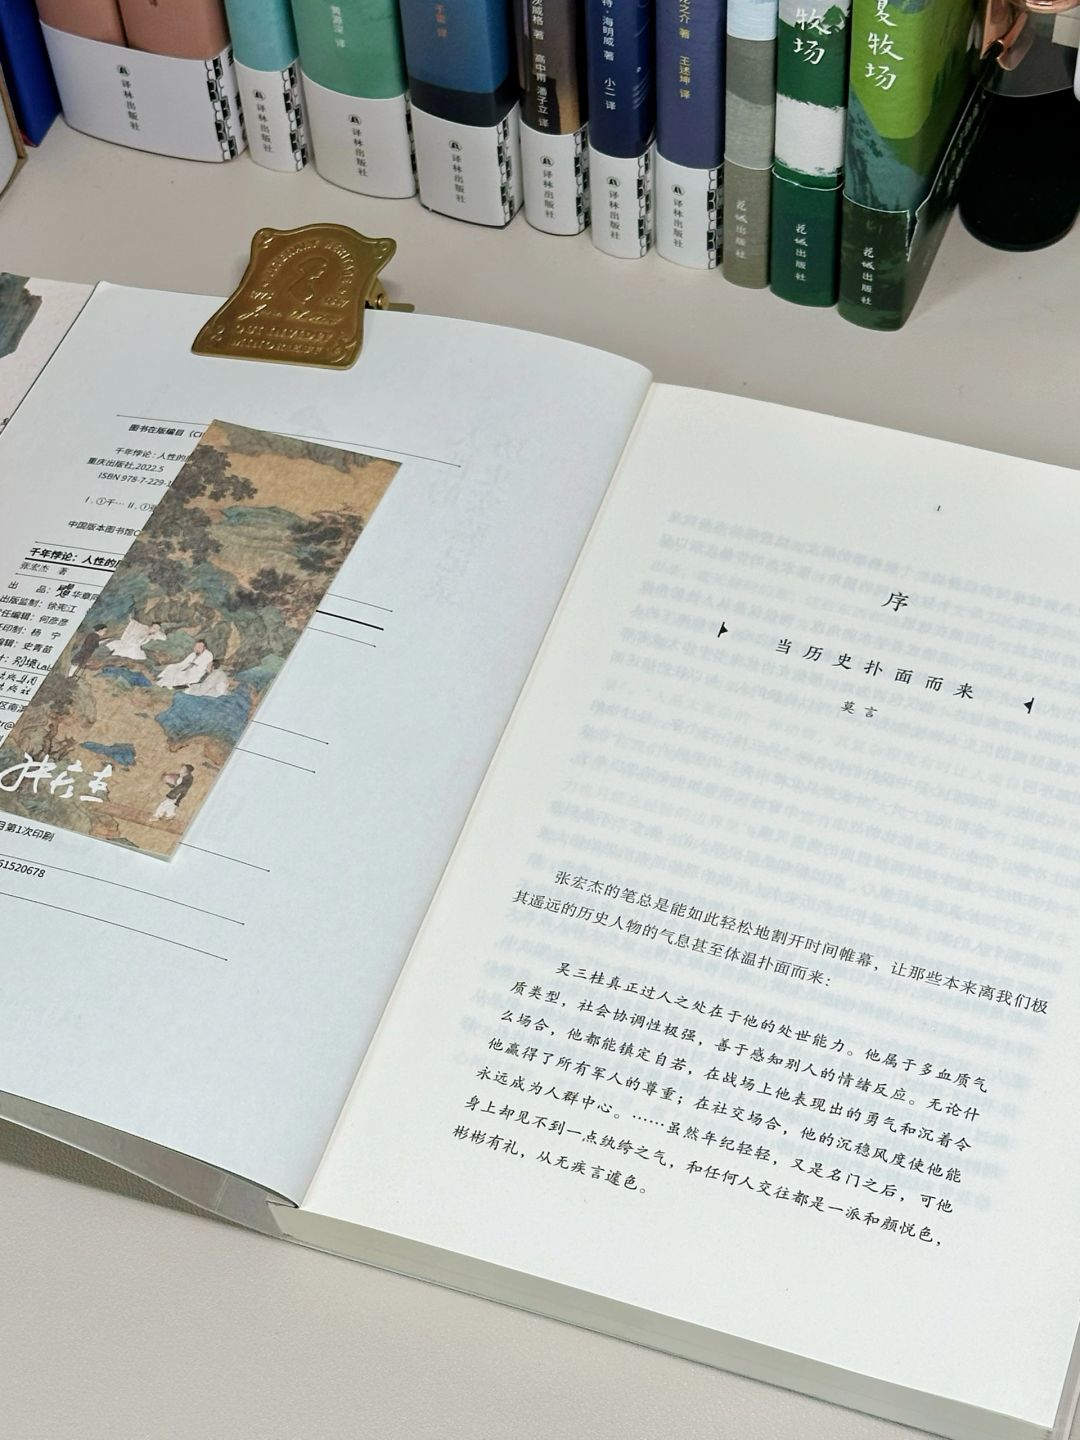 黄源深 译
著
高中甫 潘子立 译
海明威 著
小二 译
著
王述坤 译
牧场
夏牧场
译林出版社
译林出版社
译林出版社
译林出版社
译林出版社
译林出版社
译林出版社
花城出版社
花城出版社
花城出版社
图书在版编目
千年悖论：人性的
重庆出版社,2022.5
ISBN 978-7-229-1
Ⅰ.①千… Ⅱ.①
中国版本图书馆C
千年悖论：人性的
张宏杰 著
出 品：
华章同
出版监制：徐宪江
责任编辑：何彦彦
印制：杨 宁
编辑：史青苗
别境Lab
张宏杰
第1次印刷
61520678
1
序
当历史扑面而来
莫言
张宏杰的笔总是能如此轻松地割开时间帷幕，让那些本来离我们极
其遥远的历史人物的气息甚至体温扑面而来：
吴三桂真正过人之处在于他的处世能力。他属于多血质气
质类型，社会协调性极强，善于感知别人的情绪反应。无论什
么场合，他都能镇定自若，在战场上他表现出的勇气和沉着令
他赢得了所有军人的尊重；在社交场合，他的沉稳风度使他能
永远成为人群中心。……虽然年纪轻轻，又是名门之后，可他
身上却见不到一点纨绔之气，和任何人交往都是一派和颜悦色，
彬彬有礼，从无疾言遽色。